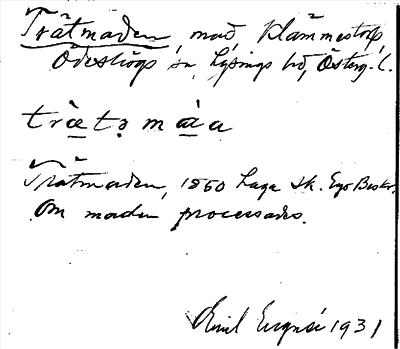 Trätmaden, mad, Klämmestorp,
Ödeshögs sn, Lysings hd, Österg. l.
trä̀tǝmàa
Trätmaden, 1850 Laga sk. Ego Beskr.
Om maden processades.
Emil 1931